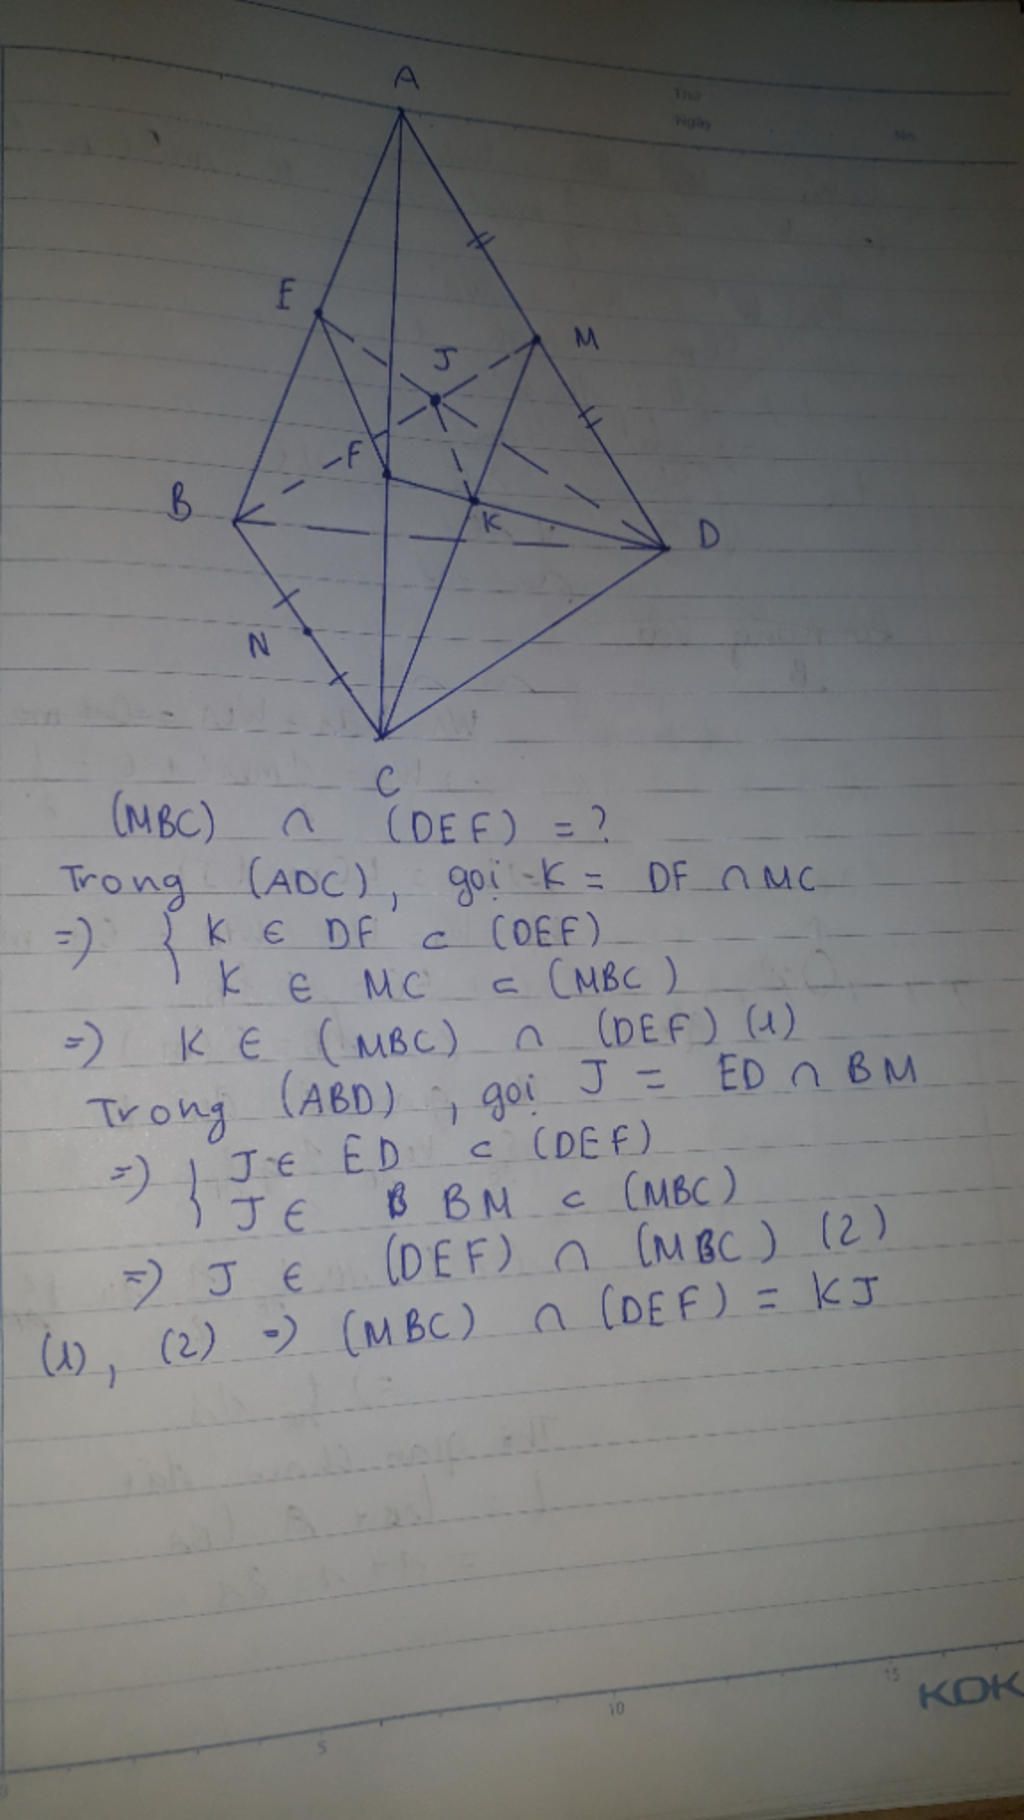 Thứ
Ngày
No.
A
E
M
J
F
B
K
D
N
C
(MBC) ∩ (DEF) = ?
Trong (ADC), gọi K = DF ∩ MC
=> { K ∈ DF ⊂ (DEF)
K ∈ MC ⊂ (MBC)
=> K ∈ (MBC) ∩ (DEF) (1)
Trong (ABD), gọi J = ED ∩ BM
=> { J ∈ ED ⊂ (DEF)
J ∈ B BM ⊂ (MBC)
=> J ∈ (DEF) ∩ (MBC) (2)
(1), (2) => (MBC) ∩ (DEF) = KJ
5
10
15
KOK